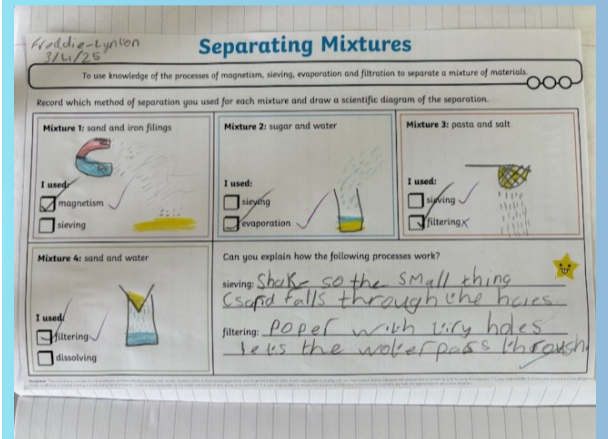 Freddie-Lynton
3/4/25
Separating Mixtures
To use knowledge of the processes of magnetism, sieving, evaporation and filtration to separate a mixture of materials.
Record which method of separation you used for each mixture and draw a scientific diagram of the separation.
Mixture 1: sand and iron filings
I used:
magnetism
sieving
Mixture 2: sugar and water
I used:
sieving
evaporation
Mixture 3: pasta and salt
I used:
sieving
filtering
Mixture 4: sand and water
I used:
filtering
dissolving
Can you explain how the following processes work?
sieving: Shake so the small thing
falls through the
filtering: Paper with holes
lets the water pass through